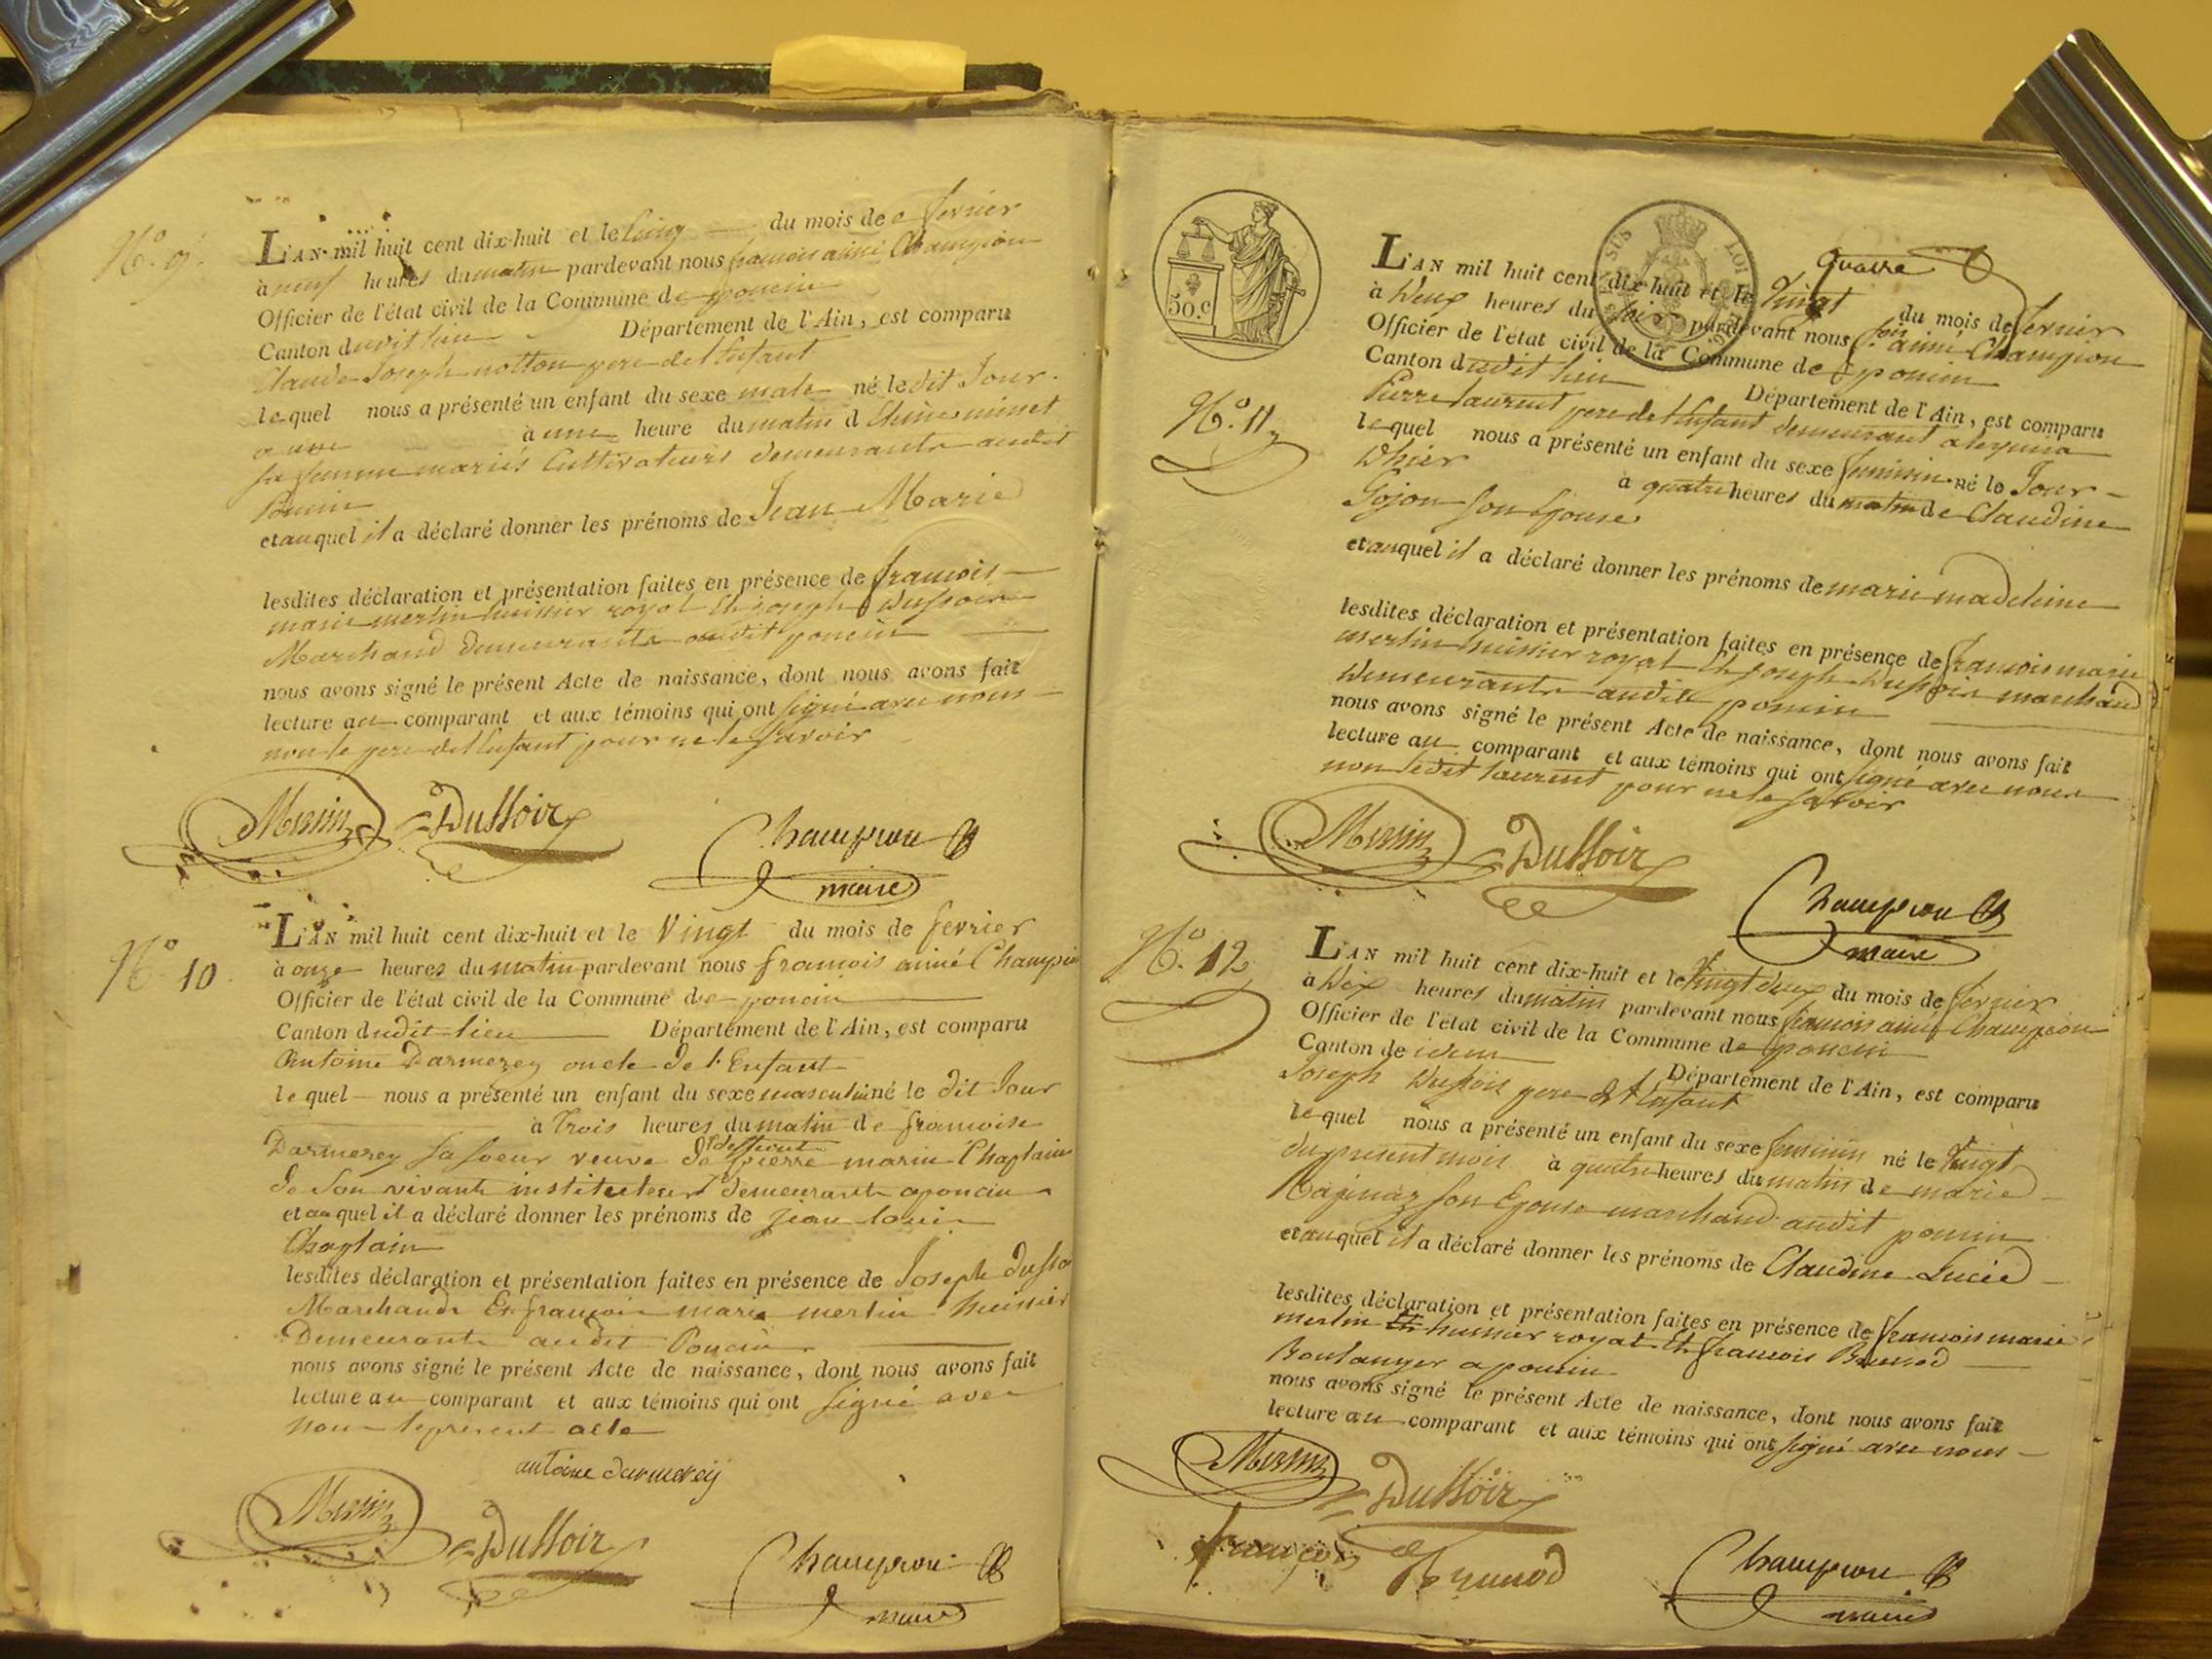 N.o 9.
L'AN mil huit cent dix-huit et le cinq du mois de fevrier
à neuf heures du matin pardevant nous francois aimé Champion
Officier de l'état civil de la Commune de poncin
Canton dudit lieu Département de l'Ain, est comparu
Claude Joseph notton pere de l'Enfant
lequel nous a présenté un enfant du sexe male né ledit Jour
a une à une heure du matin d
sa femme mariés Cultivateurs demeurants audit
Poncin
et auquel il a déclaré donner les prénoms de Jean Marie
lesdites déclaration et présentation faites en présence de francois
marie merlin huissier royal Et joseph Dussoir
Marchand demeurants audit poncin
nous avons signé le présent Acte de naissance, dont nous avons fait
lecture au comparant et aux témoins qui ont signé avec nous
non le pere de l'Enfant pour ne le savoir
Merlin Dussoir Champion
maire
N.o 10
L'AN mil huit cent dix-huit et le Vingt du mois de fevrier
à onze heures du matin pardevant nous francois aimé Champion
Officier de l'état civil de la Commune de poncin
Canton dudit lieu Département de l'Ain, est comparu
Antoine Darmezey oncle de l'Enfant
lequel nous a présenté un enfant du sexe masculin né le dit Jour
à trois heures du matin de francoise
Darmezey sa soeur veuve de pierre marin Chaplain
de son vivant instituteur demeurant a poncin
et auquel il a déclaré donner les prénoms de jean louis
Chaplain
lesdites déclaration et présentation faites en présence de Joseph Dusso
Marchand Et françois marie merlin huissier
Demeurants audit Poncin
nous avons signé le présent Acte de naissance, dont nous avons fait
lecture au comparant et aux témoins qui ont signé avec
nous le present acte
antoine darmezey
Merlin Dussoir Champion
maire
50.c
LOI
quatre
N.o 11
L'AN mil huit cent dix-huit et le Vingt du mois de fevrier
à Deux heures du soir pardevant nous f.ois aimé Champion
Officier de l'état civil de la Commune de poncin
Canton dudit lieu Département de l'Ain, est comparu
Pierre laurent pere de l'Enfant demeurant a
lequel nous a présenté un enfant du sexe feminin né le Jour
Dhier à quatre heures du matin de Claudine
Gojon son Epouse
et auquel il a déclaré donner les prénoms de marie madeleine
lesdites déclaration et présentation faites en présence de francois marie
merlin huissier royal Et Joseph Dussoir marchand
Demeurants audit poncin
nous avons signé le présent Acte de naissance, dont nous avons fait
lecture au comparant et aux témoins qui ont signé avec nous
non ledit laurent pour ne le savoir
Merlin Dussoir Champion
maire
N.o 12
L'AN mil huit cent dix-huit et le Vingt deux du mois de fevrier
à Dix heures du matin pardevant nous francois aimé Champion
Officier de l'état civil de la Commune de poncin
Canton de idem Département de l'Ain, est comparu
Joseph Dussoir pere de l'Enfant
lequel nous a présenté un enfant du sexe feminin né le Vingt
du present mois à quatre heures du matin de marie
son Epouse marchand audit poncin
et auquel il a déclaré donner les prénoms de Claudine Lucie
lesdites déclaration et présentation faites en présence de francois marie
merlin huissier royal Et francois Brunod
Boulanger a poncin
nous avons signé le présent Acte de naissance, dont nous avons fait
lecture au comparant et aux témoins qui ont signé avec nous
Merlin Dussoir
françois Brunod Champion
maire